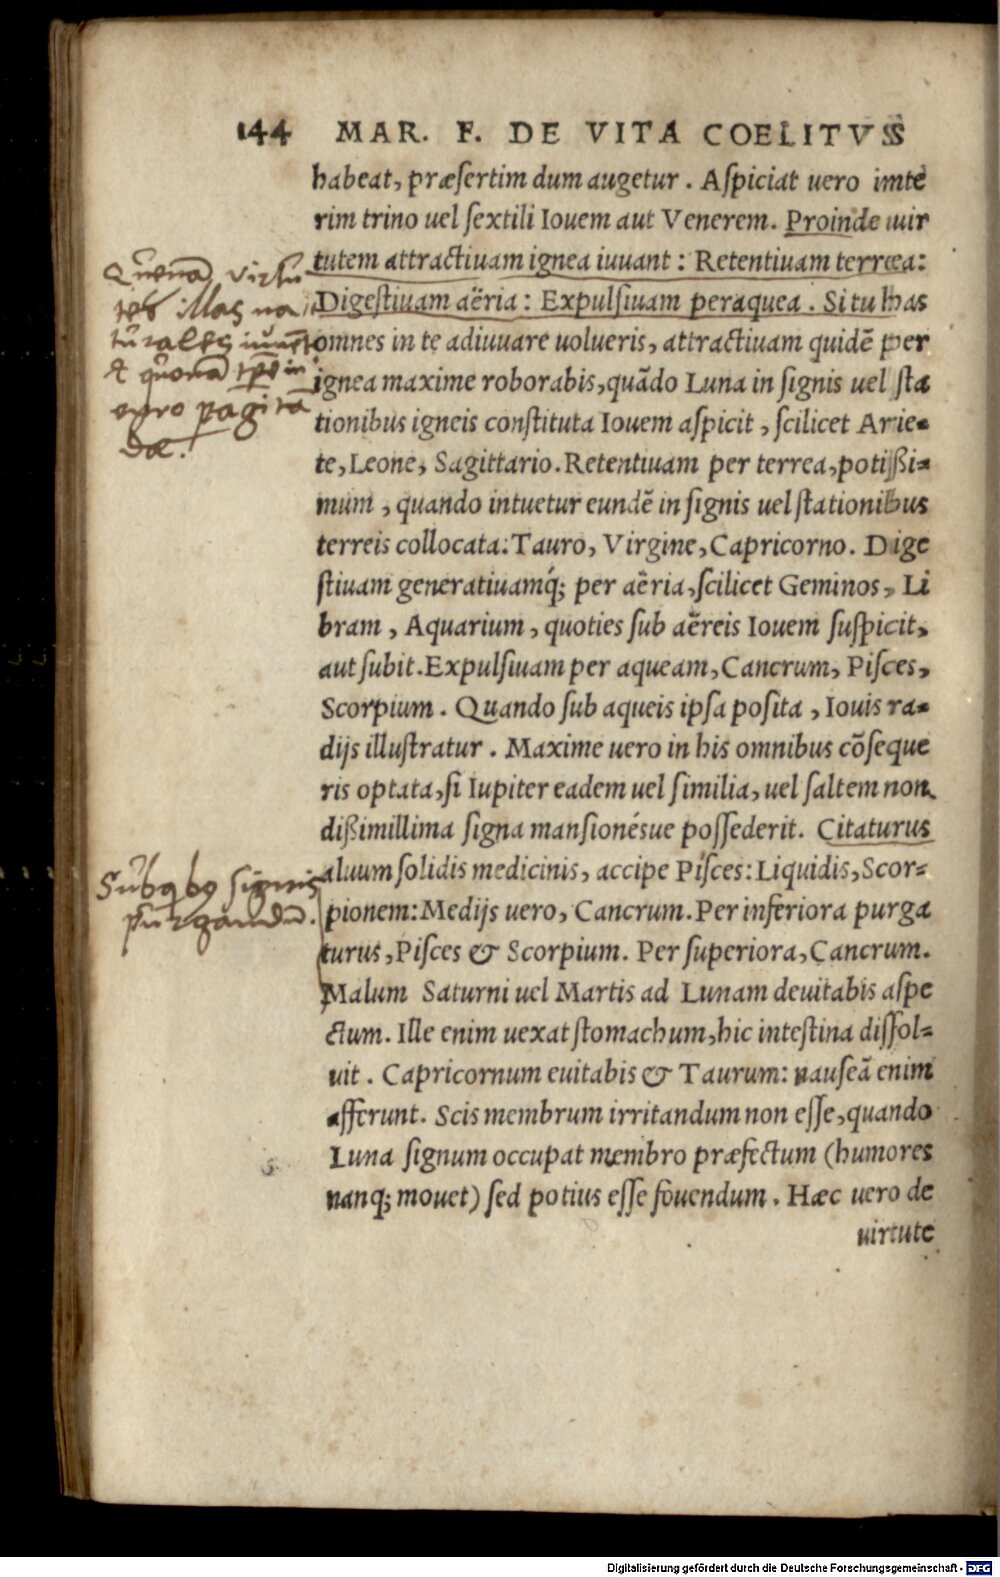 144 MAR. F. DE VITA COELITVS
habeat, præsertim dum augetur. Aspiciat uero imte
rim trino uel sextili Iouem aut Venerem. Proinde uir
tutem attractiuam ignea iuuant: Retentiuam terrea:
Digestiuam aëria: Expulsiuam peraquea. Si tu has
omnes in te adiuuare uolueris, attractiuam quidē per
ignea maxime roborabis, quãdo Luna in signis uel sta
tionibus igneis constituta Iouem aspicit, scilicet Arie-
te, Leone, Sagittario. Retentiuam per terrea, potißi-
mum, quando intuetur eundē in signis uel stationibus
terreis collocata: Tauro, Virgine, Capricorno. Dige
stiuam generatiuamq́; per aëria, scilicet Geminos, Li
bram, Aquarium, quoties sub aëreis Iouem suspicit,
aut subit. Expulsiuam per aqueam, Cancrum, Pisces,
Scorpium. Quando sub aqueis ipsa posita, Iouis ra-
dijs illustratur. Maxime uero in his omnibus cõseque
ris optata, si Iupiter eadem uel similia, uel saltem non
dißimillima signa mansionésue possederit. Citaturus
aluum solidis medicinis, accipe Pisces: Liquidis, Scor-
pionem: Medijs uero, Cancrum. Per inferiora purga
turus, Pisces & Scorpium. Per superiora, Cancrum.
Malum Saturni uel Martis ad Lunam deuitabis aspe
ctum. Ille enim uexat stomachum, hic intestina dissol-
uit. Capricornum euitabis & Taurum: nauseã enim
afferunt. Scis membrum irritandum non esse, quando
Luna signum occupat membro præfectum (humores
nanq; mouet) sed potius esse fouendum. Hæc uero de
uirtute
Quenã virtu
tes illas na
turales iuuēt
& quonã tpe in
pagitã
dæ!
Sub qbg signis
purgandũ.
Digitalisierung gefördert durch die Deutsche Forschungsgemeinschaft - DFG